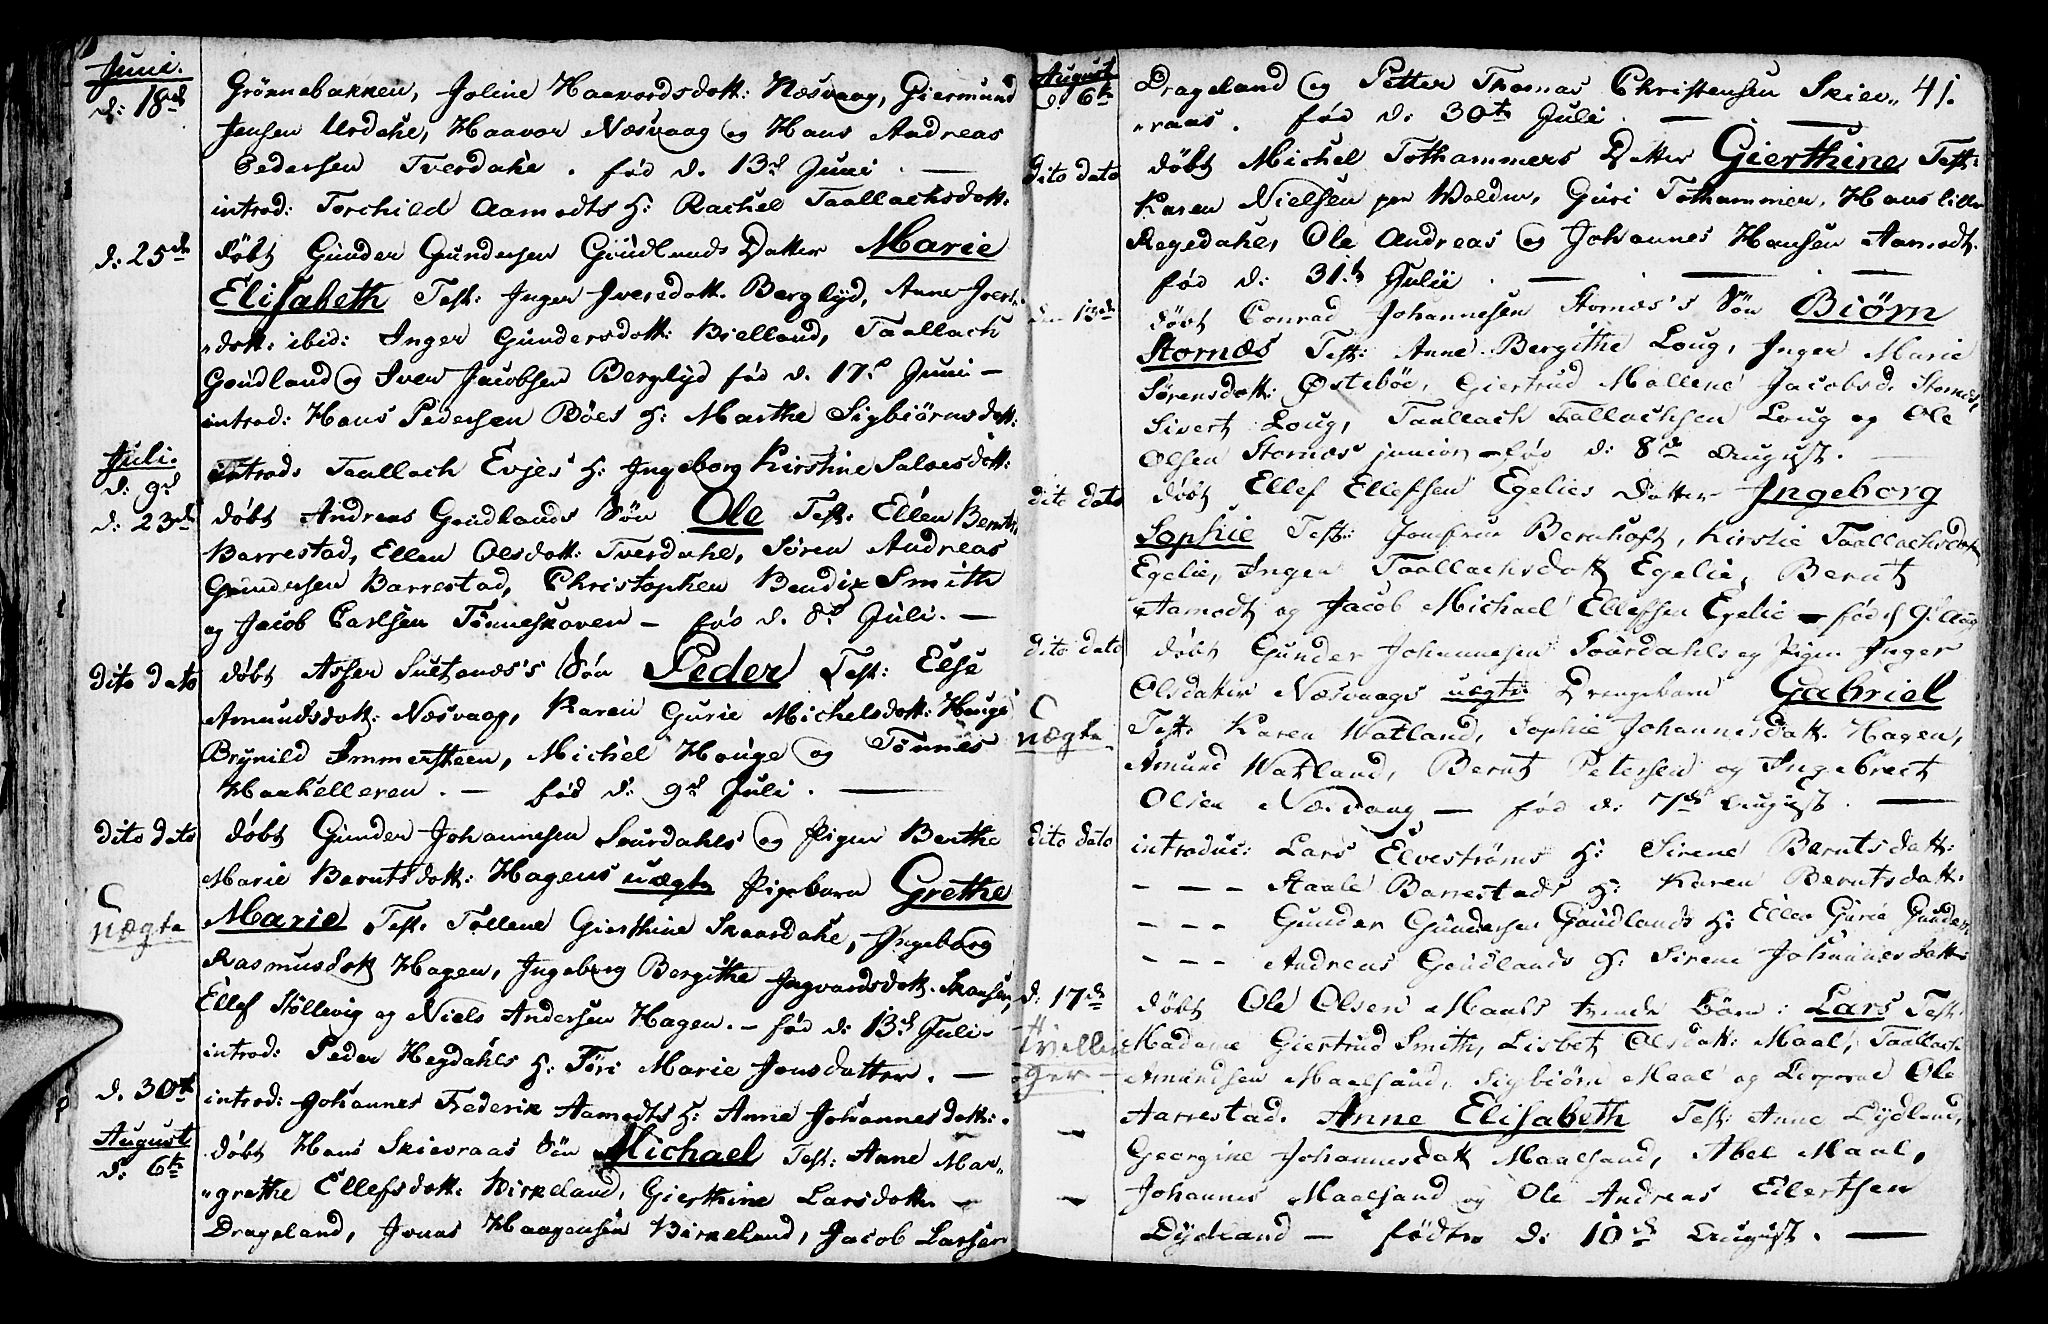 Juni.
d: 18d Grönnebakken, Joline Haavordsdott: Næsvaag, Giermund
Jensen Urdahl, Haavor Næsvaag og Hans Andreas
Pedersen Tverdahl. fød d. 13d Juni —
introd: Torchild Aamodts H: Rachel Taallachsdott:
d: 25de döbt Gunder Gundersen Goudlands Datter Marie
Elisabeth Test: Inger Iversdott. Berglyd, Anne Ivers„
„dott: ibid: Inger Gundersdott: Bielland, Taallach
Goudland og Iver Jacobsen Berglyd fød d. 17d Juni —
introd: Hans Pedersen Böes H: Marthe Sigbiörnsdott:
Juli.
d: 9d introd: Taallach Evjes H: Ingeborg Kirstine Salvesdott:
d: 23de döbt Andreas Goudlands Sön Ole Test: Ellen Bernts
Barrestad, Ellen Olsdott: Tverdahl, Sören Andreas
Gundersen Barrestad, Christopher Bendix Smith
og Jacob Carlsen Tönneskoven — fød d. 8d Juli. —
dito dato döbt Asser Sultenæs's Sön Peder Test: Else
Amundsdott: Næsvaag, Karen Gurie Michelsdott: Houge
Brynild Immersteen, Michel Houge og Tönnes
Haahelleren. — fød d: 9d Juli. —
dito dato döbt Gunder Johannesen Sourdahls og Pigen Berthe
Marie Berntsdott: Hagens uægte Pigebarn Grethe
uægte
Marie Test. Tollene Gierthine Skaardahl, Ingeborg
Rasmusdott Hagen, Ingeborg Bergithe Ingvardsdott. Skansen,
Ellef Stöllevig og Niels Andersen Hagen. — fød d: 13d Juli.
introd: Peder Hegdahls H: Töri Marie Jonsdatter. —
d. 30te introd: Johannes Frederik Aamodts H: Anne Johannesdott:.
August
d: 6te döbt Hans Skievraas Sön Michael Test: Anne Mar„
„grethe Ellefsdott: Birkeland, Gierthine Larsdott. —
Drageland, Jonas Haagensen Birkeland, Jacob Larsen
August
d: 6te Drageland og Petter Thomas Christensen Skiev„ 41.
„raas. fød d: 30te Juli. —
dito dato döbt Michel Tothammers Datter Gierthine Test:
Karen Nielsen paa Volden, Guri Tothammer, Hans lille
Regedahl, Ole Andreas og Johannes Hansen Aamodt.
fød d: 31te Julii. —
den 13de döbt Conrad Johannesen Stornæs's Sön Biörn
Stornæs Test: Anne Bergithe Loug, Inger Marie
Sörensdott: Östeböe, Giertrud Mallene Jacobsd. Stornæs,
Sivert Loug, Taallach Taallachsen Loug og Ole
Olsen Stornæs junior — fød d: 8de August. —
dito dato döbt Ellef Ellefsen Egelies Datter Ingeborg
Sophie Test: Jomfrue Bernhoft, Kirstie Taallachsdott
Egelie, Inger Taallachsdott Egelie, Bernt
Aamodt og Jacob Michael Ellefsen Egelie — fød d 9d Aug
dito dato döbt Gunder Johannesen Sourdahls og Pigen Inger
Olsdatter Næsvaags uægte Drengebarn Gabriel
uægte
Test: Karen Vatland, Sophie Johannesdott. Hagen,
Amund Vatland, Bernt Petersen og Ingebrect
Olsen Næsvaag — fød d: 7de August. —
dito dato introduc: Lars Elvestrøms H: Sirene Berntsdatt:
— — — Staale Barrestads H: Karen Berntsdatt:
— — — Gunder Gundersen Goudlands H: Ellen Gurie Gunders
— — — Andreas Goudlands H: Sirene Johannesdatt:
d: 17de döbt Ole Olsen Maals tvende Börn: Lars Test.
Tvillin
ger
Madame Giertrud Smith, Lisbet Olsdatt: Maal, Taallach
Amundsen Maalsand, Sigbiörn Maal og Corporal Ole
Aarrestad. Anne Elisabeth Test: Anne Dydland,
Georgine Johannesdatt Maalsand, Abel Maal,
Johannes Maalsand og Ole Andreas Eilertsen
Dydland — fødte d: 10de August. —